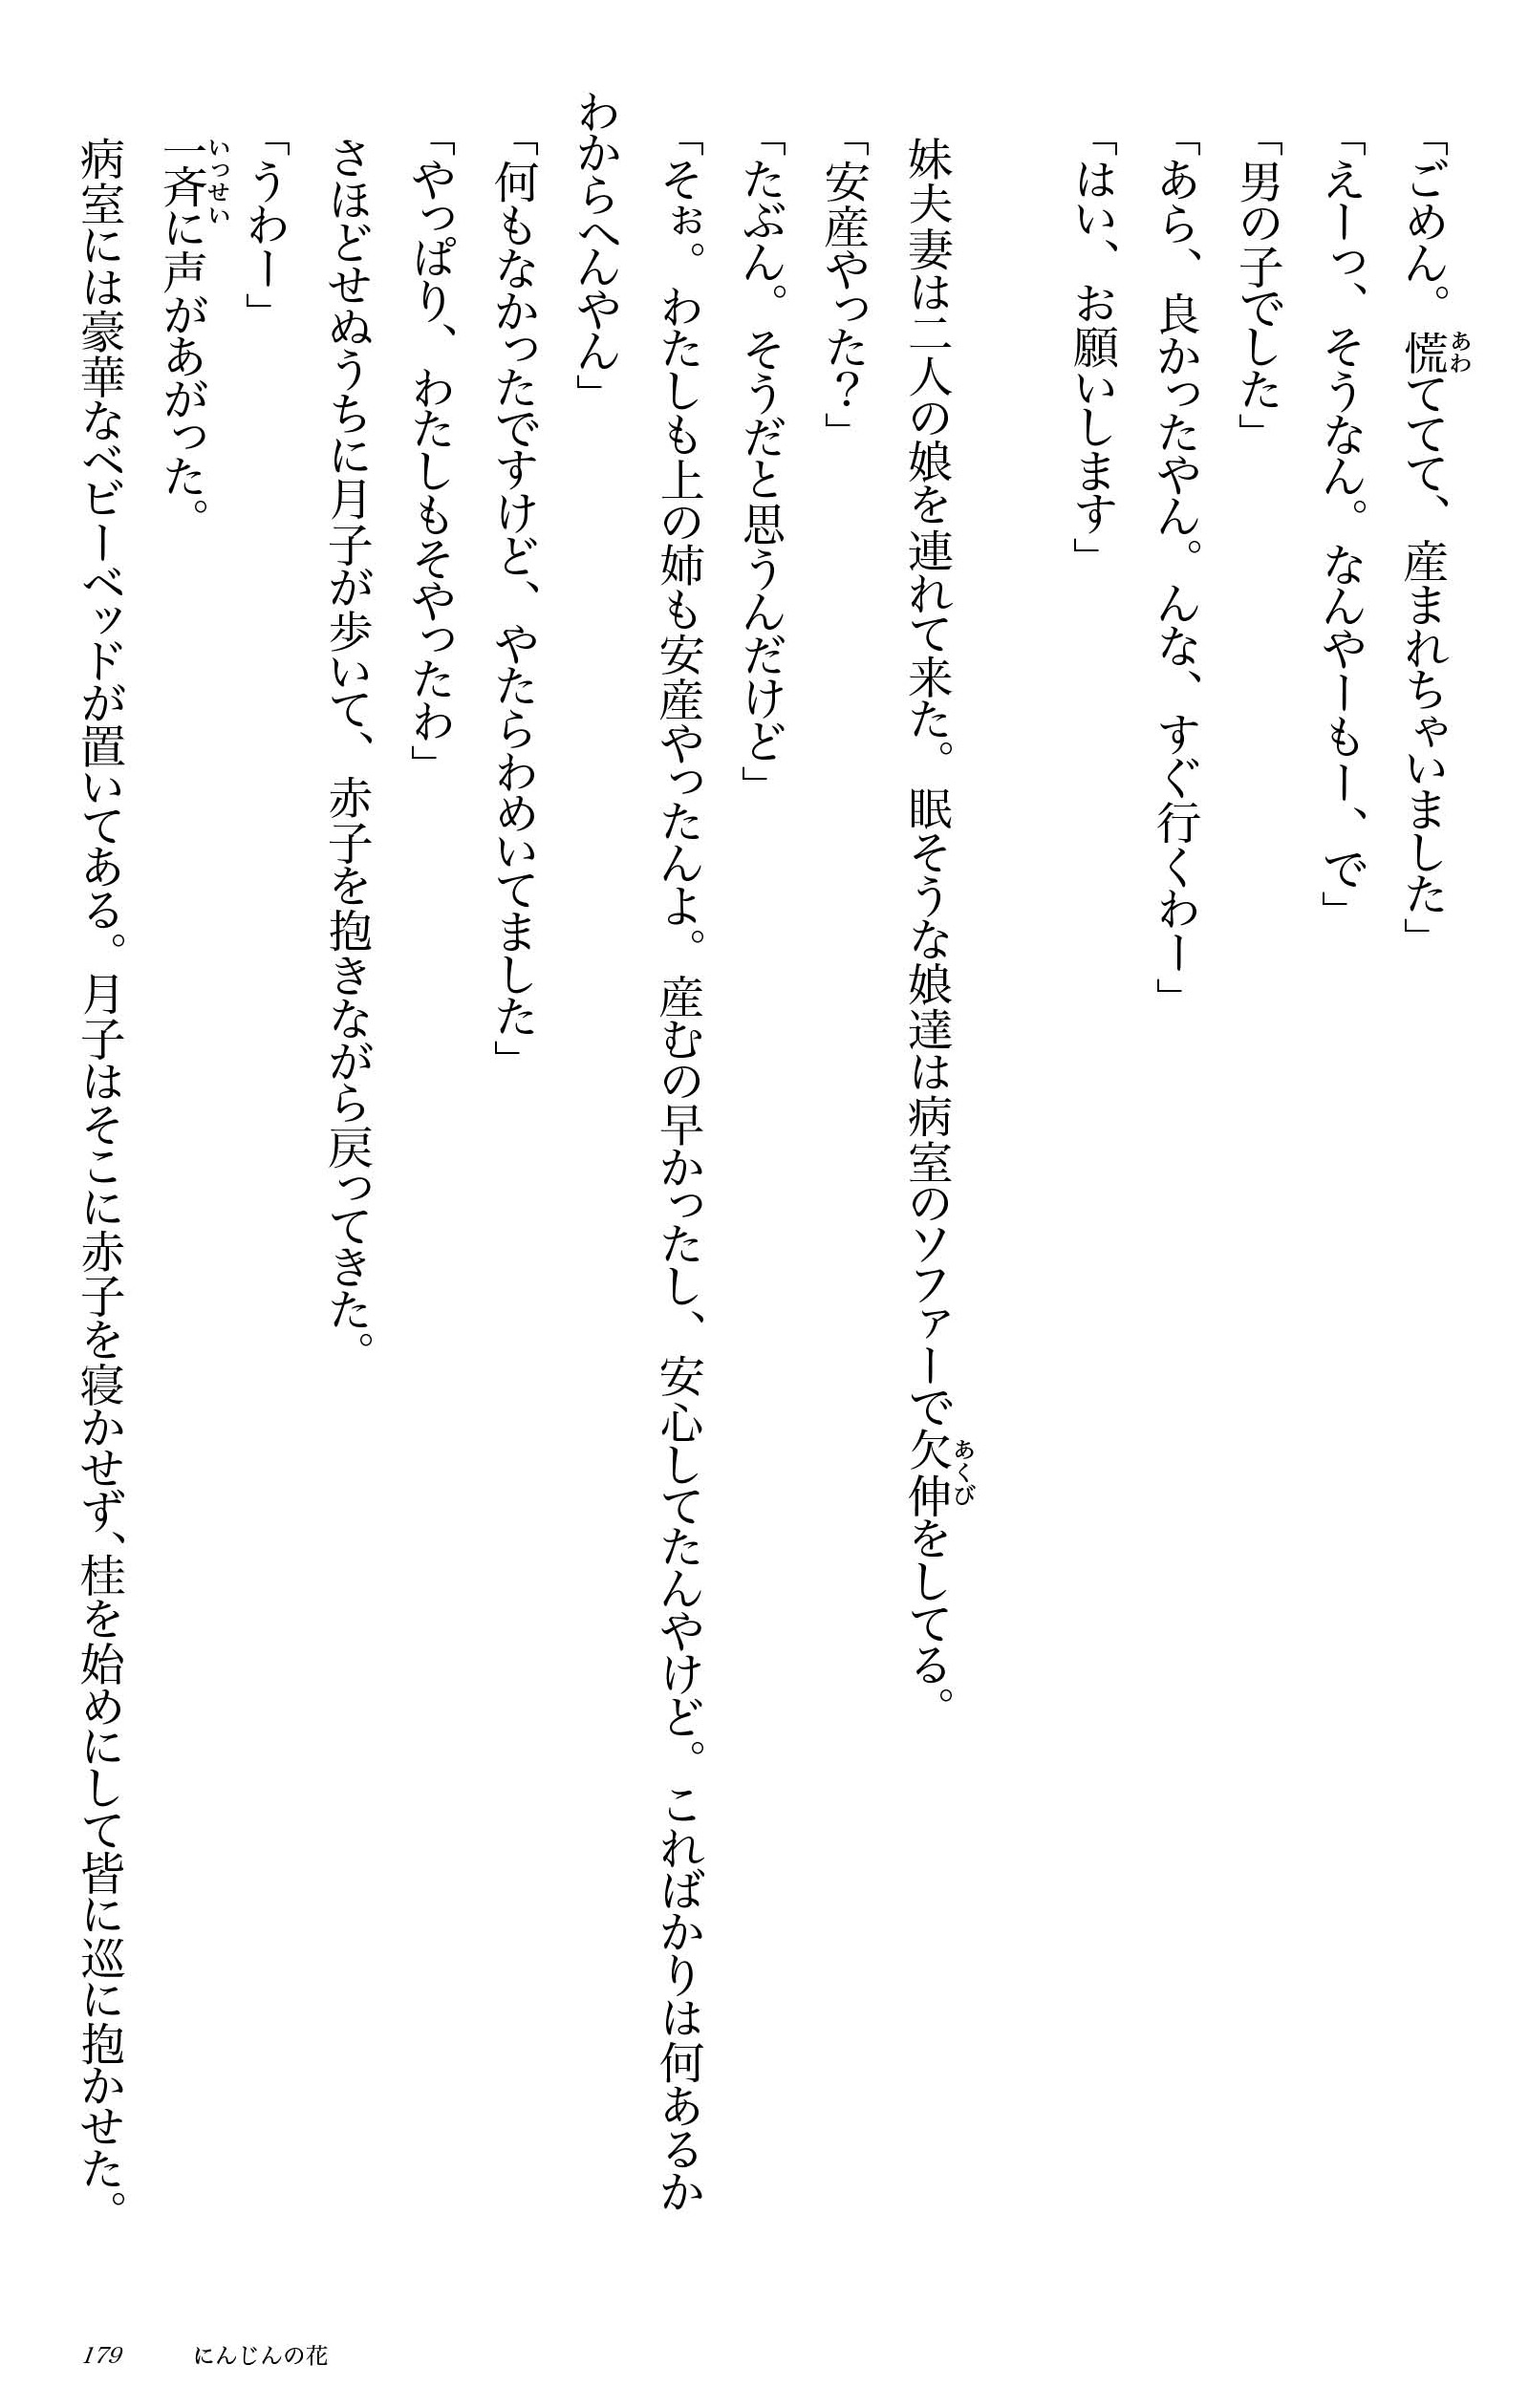 「ごめん。慌ててて、産まれちゃいました」
「えーっ、そうなん。なんやーもー、で」
「男の子でした」
「あら、良かったやん。んな、すぐ行くわー」
「はい、お願いします」
妹夫妻は二人の娘を連れて来た。眠そうな娘達は病室のソファーで欠伸をしてる。
「安産やった？」
「たぶん。そうだと思うんだけど」
「そぉ。わたしも上の姉も安産やったんよ。産むの早かったし、安心してたんやけど。こればかりは何あるか
わからへんやん」
「何もなかったですけど、やたらわめいてました」
「やっぱり、わたしもそやったわ」
さほどせぬうちに月子が歩いて、赤子を抱きながら戻ってきた。
「うわー」
一斉に声があがった。
病室には豪華なベビーベッドが置いてある。月子はそこに赤子を寝かせず、桂を始めにして皆に巡に抱かせた。
あわ
あくび
いっせい
179 にんじんの花